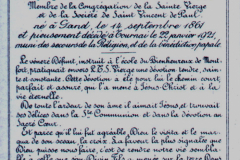 Membre de la Congrégation de la Sainte Vierge
et de la Société de Saint Vincent de Paul
né à Gand, le 14 septembre 1861
et pieusement décédé à Tournai le 22 janvier 1921,
muni des secours de la Religion, et de la bénédiction papale
Le vénéré Défunt, instruit à l'école du Bienheureux de Mont-
fort, pratiquait envers la T. S. Vierge une dévotion tendre, sainte
et constante. Cette dévotion a été pour lui le chemin court,
parfait et assuré, qui l'a mené à Jésus-Christ et à la
vie éternelle.
De toute l'ardeur de son âme il aimait Jésus, et trouvait
ses délices dans la Ste Communion et dans la dévotion au
Sacré Cœur.
Et parce qu'il lui fut agréable, Dieu le visita et le mar-
qua de son sceau, la croix. La faveur la plus signalée que
Dieu puisse nous faire, c'est de rendre notre vie sembla-